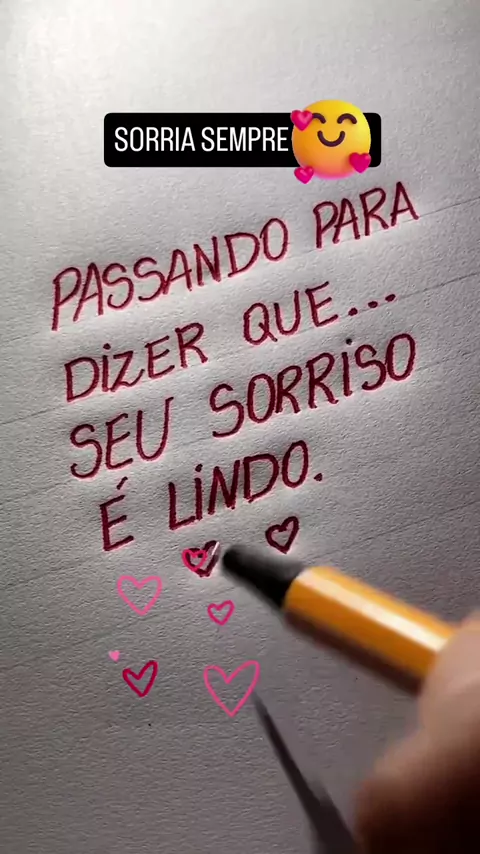 SORRIA SEMPRE
PASSANDO PARA
DIZER QUE...
SEU SORRISO
É LINDO.